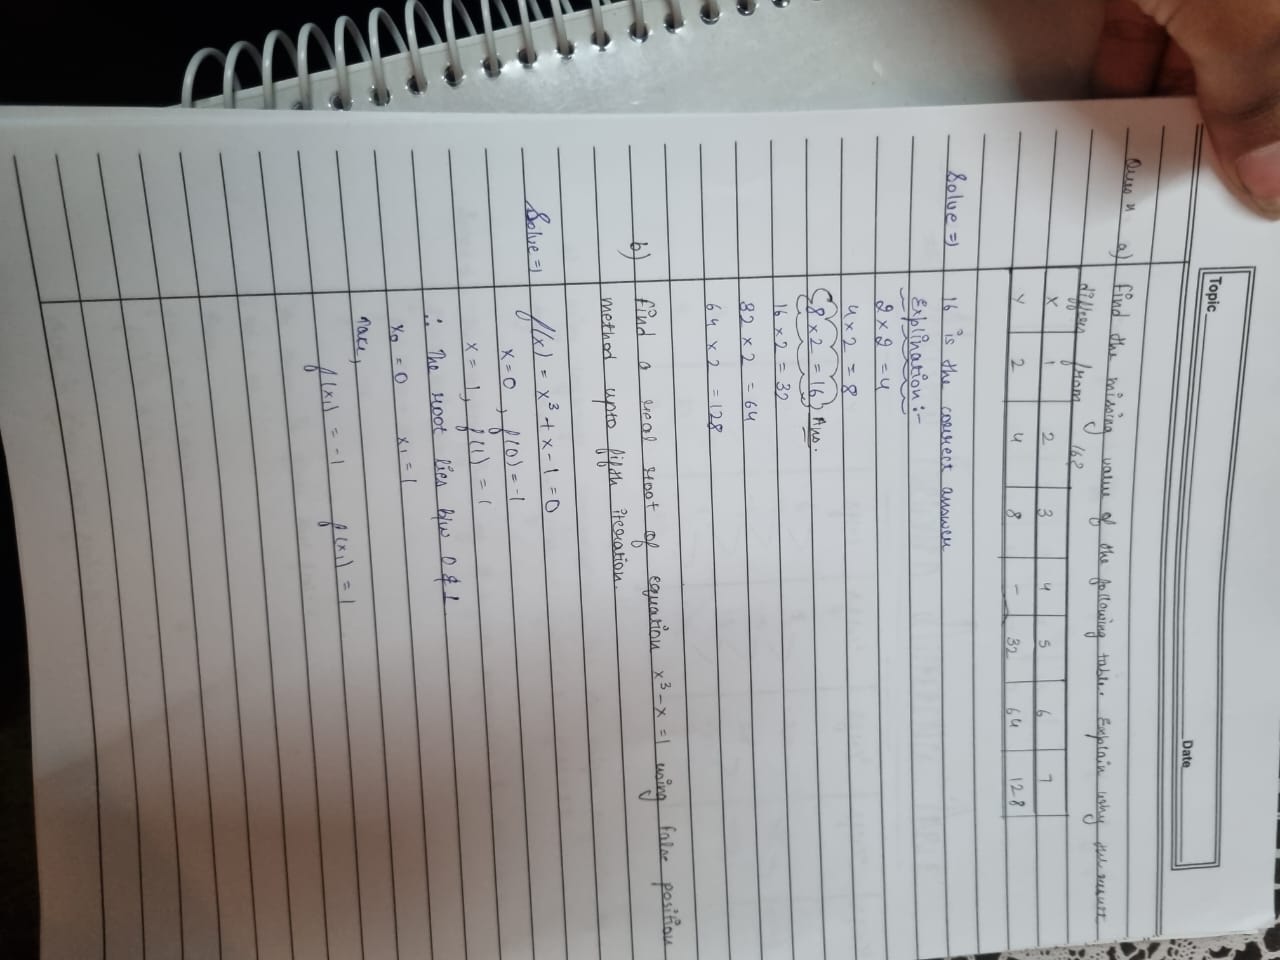 Topic
Date
Ques 4 a) find the missing value of the following table. Explain why the result
differ from 16?
X 1 2 3 4 5 6 7
Y 2 4 8 - 32 64 128
Solve => 16 is the correct answer
Explination :-
2 × 2 = 4
4 × 2 = 8
8 × 2 = 16 Ans.
16 × 2 = 32
32 × 2 = 64
64 × 2 = 128
b) find a real root of equation x³ - x = 1 using false position
method upto fifth iteration.
Solve => f(x) = x³ + x - 1 = 0
x = 0, f(0) = -1
x = 1, f(1) = 1
∴ The root lies b/w 0 & 1
x₀ = 0 x₁ = 1
f(x₁) = -1 f(x₁) = 1